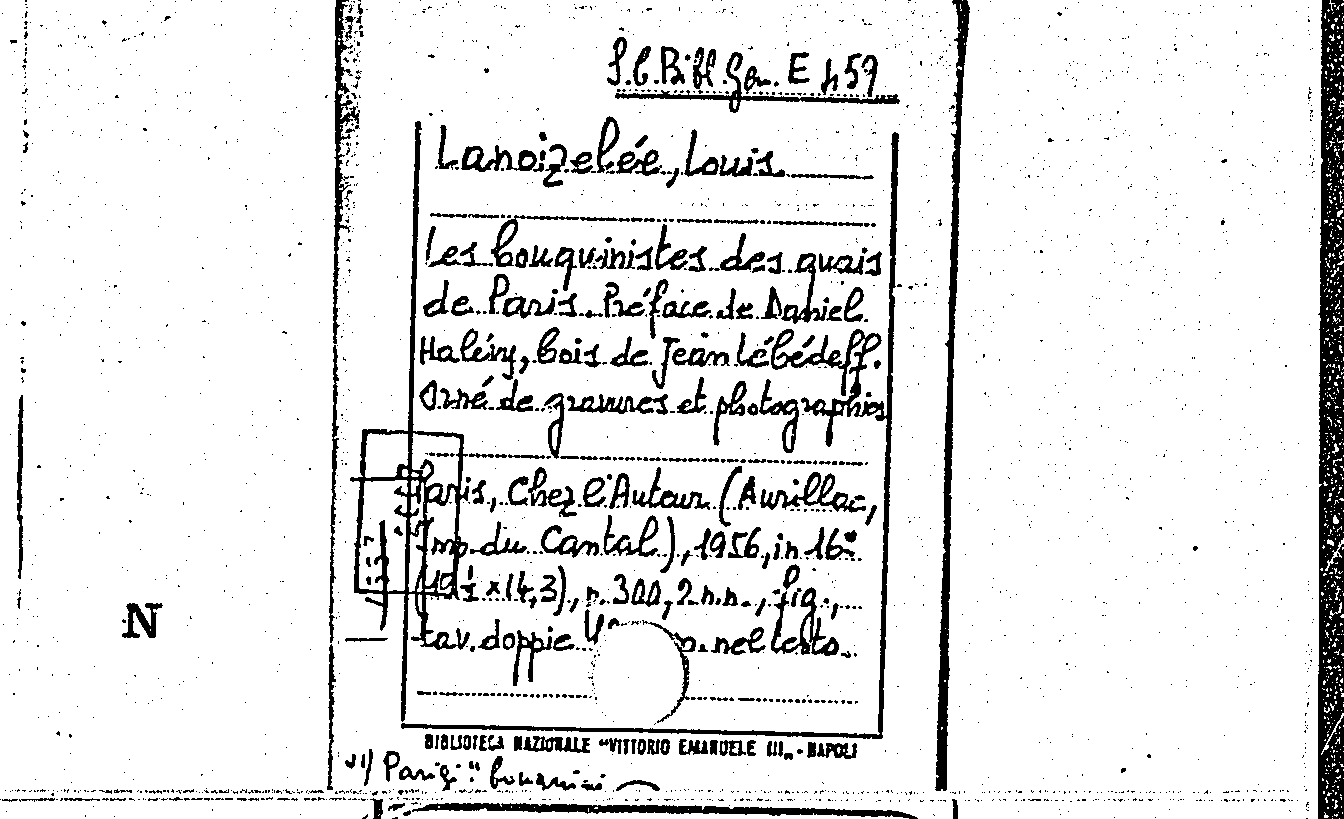 S.C. Bibl. Gen. E 459
Lanoizelée, Louis.
Les bouquinistes des quais
de Paris. Préface de Daniel
Halévy, bois de Jean Lébédeff.
Orné de gravures et photographies
Paris, Chez l'Auteur (Aurillac,
Imp. du Cantal), 1956, in 16°
× 14,3), p. 300, 2 n.n., fig.,
tav. doppie nel testo.
BIBLIOTECA NAZIONALE "VITTORIO EMANUELE III„ - NAPOLI
Parigi
N